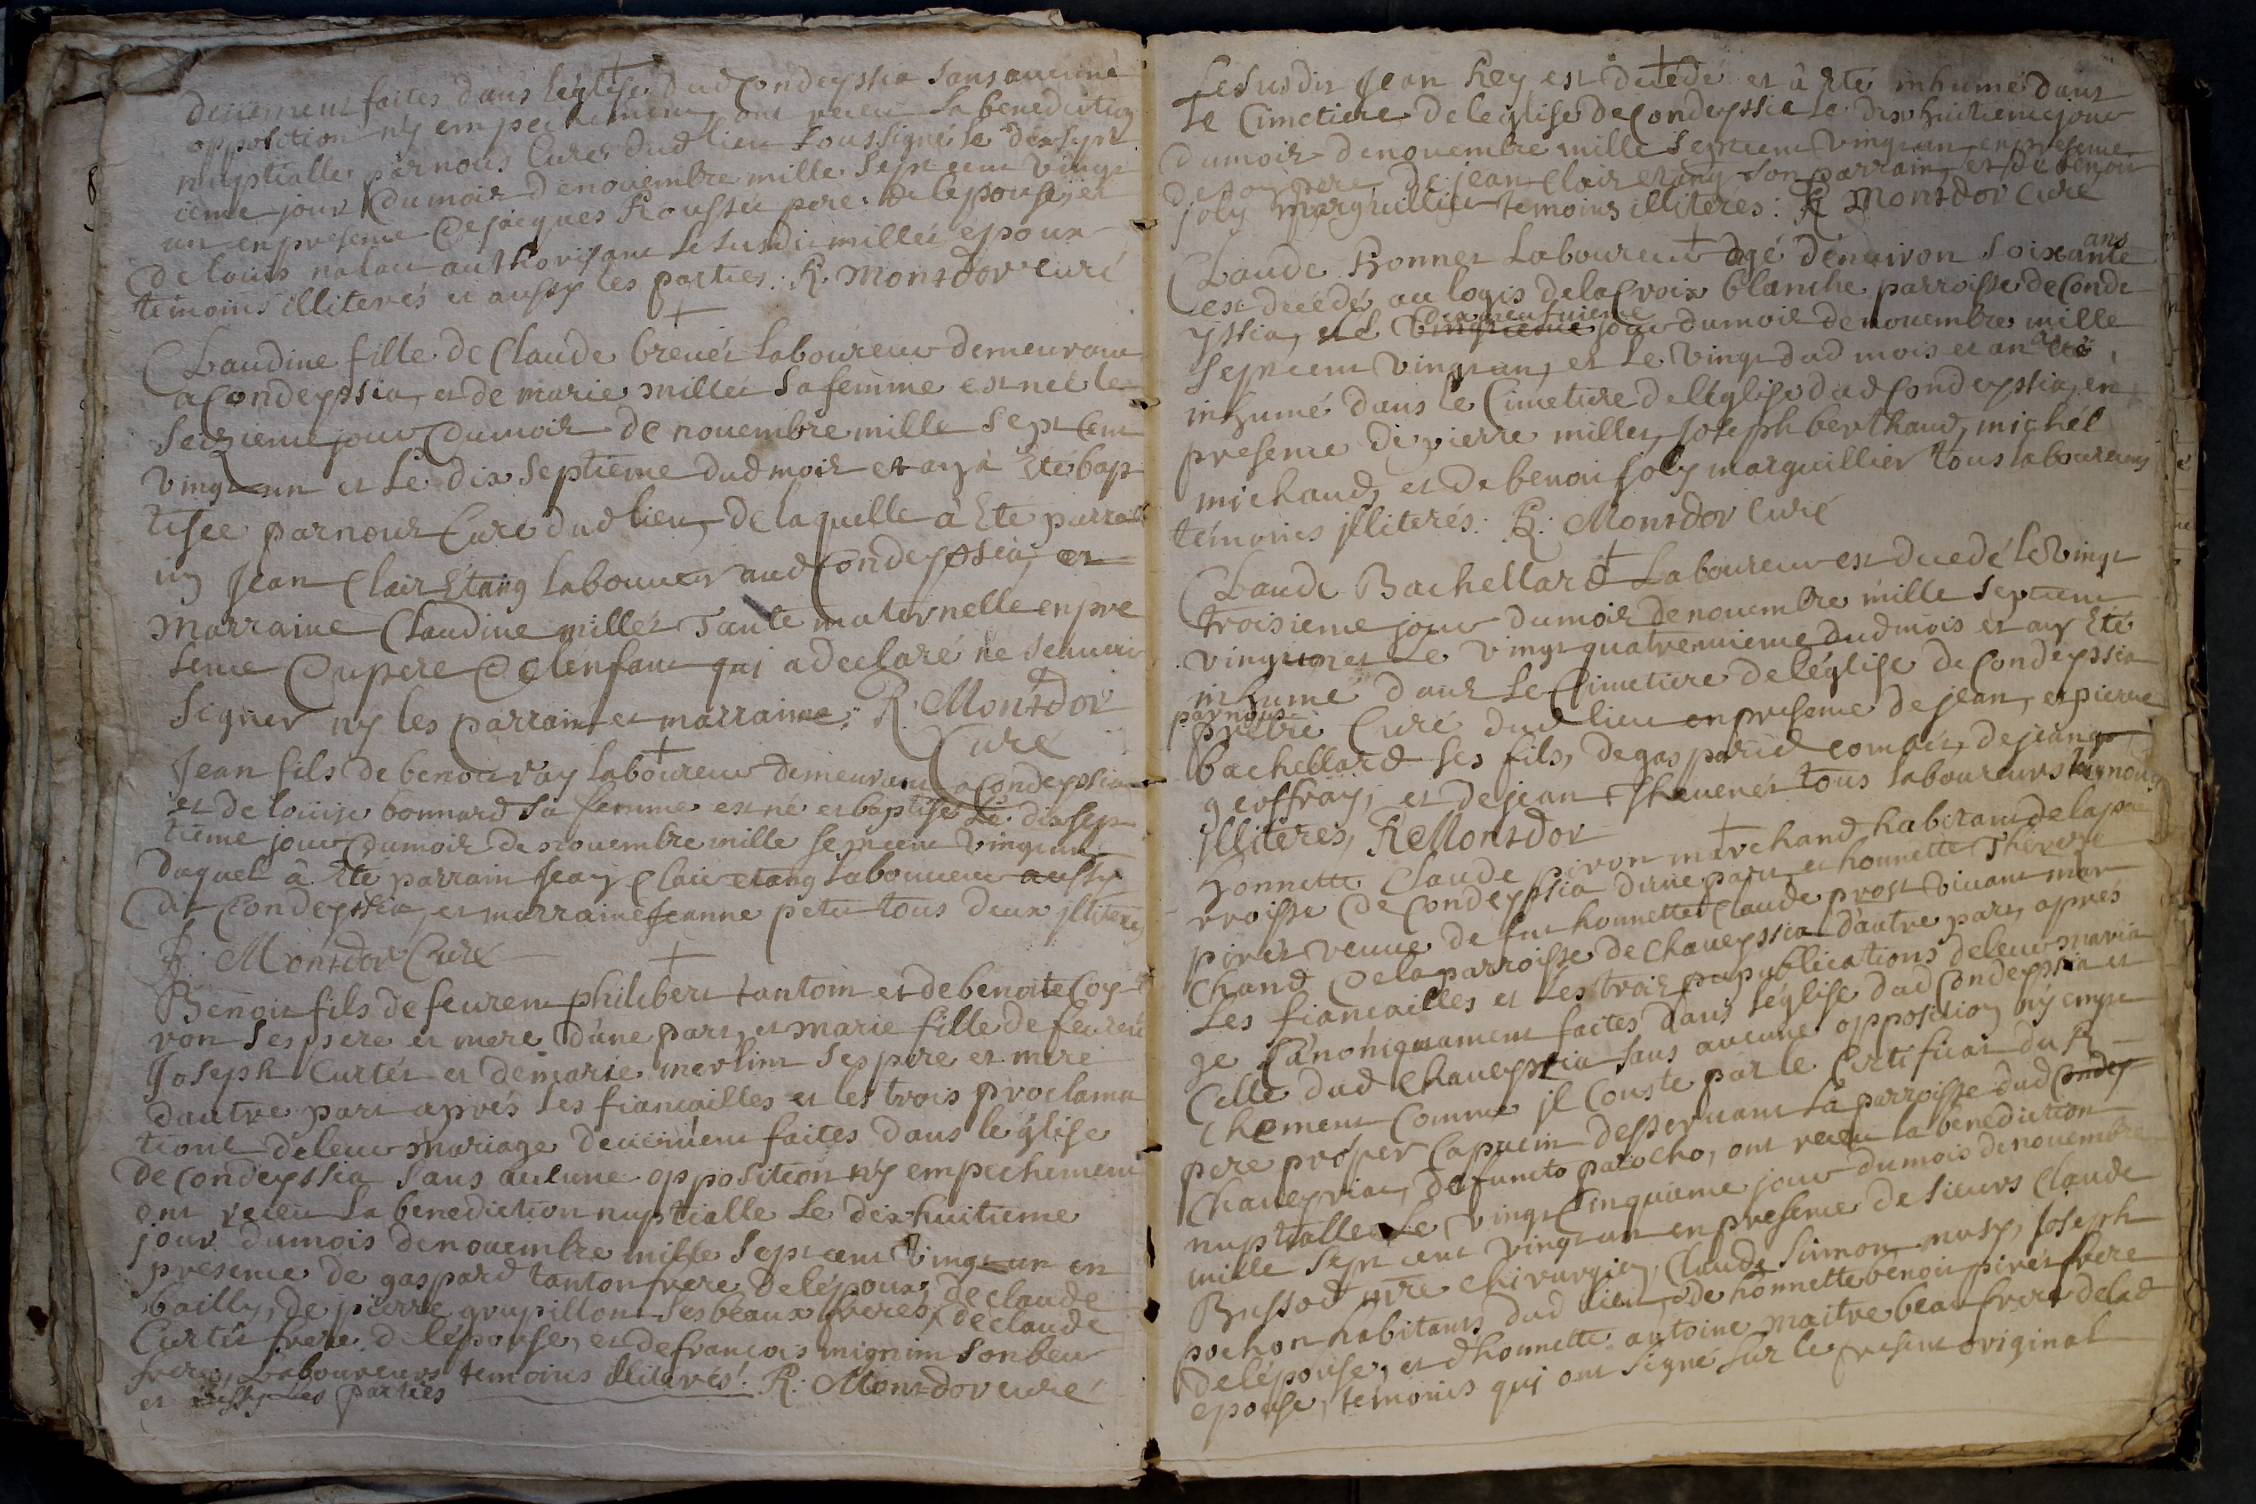 deüement faites dans léglise dud Condeyssia sans aucune
opposition ny empechement, ont receu la benediction
nuptialle par nous Curé dud lieu soussigné le dixsept
ieme jour du mois de nouembre mille sept cent vingt
un en presence de jacques Rousset pere de lepouse, et
de louis nalau authorisant le susdit millet epoux
temoins illiterés et aussy les parties. R. Montdor curé
Claudine fille de Claude breuet laboureur demeurant
a Condeyssia, et de marie millet sa femme est neé le
seizieme jour du mois de nouembre mille sept cent
vingt un et le dix septieme dud mois et an à Eté bap
tisée par nous Curé dud lieu, de laquelle à Eté parra
in Jean Clair Etang laboureur aud Condeyssia, et
marraine Claudine millet Tante maternelle en pre
sence du pere de lenfant qui a declaré ne scauoir
signer ny les parrain et marraine. R. Montdor
Curé
Jean fils de benoit ray laboureur demeurant a Condeyssia
et de louise bonnard sa femme est né et baptisé le dixsep
tieme jour du mois de nouembre mille sept cent vingt un
duquel à Eté parrain jean Clair etang laboureur aussy
du Condeyssia, et marraine jeanne petit tous deux jlliterés
R. Montdor Curé
Benoit fils de feurent philibert tantoin et de benoite Coy
ron ses pere et mere d'une part, et marie fille de feurent
Joseph Curtet et de marie merlin ses pere et mere
dautre part aprés les fiancailles et les trois proclama
tions de leur mariage deüement faites dans leglise
de Condeyssia sans aucune opposition ny empechement
ont receu la benediction nuptialle le dix huitieme
jour du mois de nouembre mille sept cent vingt un en
presence de gaspard tanton frere de lépoux, de claude
bailly, de pierre grupillon ses beaux freres, de claude
Curtet frere de lépouse, et de francois mignin son beu
frere, laboureurs temoins illiterés. R. Montdor curé
et aussy les parties
Le susdit Jean Rey est decedé et â Eté inhumé dans
le Cimetiere de leglise de Condeyssia le dix huitieme jour
du mois de nouembre mille sept cent vingt un en presence
de son pere, de jean clair etang son parrain, et de benoit
joly marguillier temoins illiteres. R Montdor Curé
Claude Bonnet laboureur agé d'enuiron soixante ans
est decedé au logis de la Croix blanche parroisse de Conde
yssia, le dixneufuieme jour du mois de nouembre mille
sept cent vingt un, et le vingt dud mois et an a Eté
inhumé dans le Cimetiere de l'Eglise dud Condeyssia, en
presence de pierre millet, Joseph berthaud, michel
michaud, et de benoit joly marguillier tous laboureurs
témoins jlliterés. R. Montdor Curé
Claude Bachellard laboureur est decedé le vingt
troisieme jour du mois de nouembre mille sept cent
vingt un et le vingt quatreuuieme dud mois et an Eté
inhumé dans le Cimetiere de léglise de Condeyssia
par nous prêtre Curé dud lieu en presence de jean, et pierre
bachellard ses fils, de gaspard comtet, de jean
geoffray, et de jean Theuenet tous laboureurs temoins
jlliteres, R Montdor
Honnette Claude piron marchand habitant de la pa
rroisse de Condeyssia d'une part, et honnette Therese
piret veuue de feu honnette Claude prost viuant mar
chand de la parroisse de Chaueyssia d'autre part, aprés
les fiancailles et les trois publications de leur maria
ge Canoniquement faites dans léglise dud Condeyssia et
celle dud Chaueyssia sans aucune opposition ny empe
chement comme jl Conste par le Certificat du R.
pere prosper Capucin desseruant la parroisse dud
Chaueyriat, defuncto parocho, ont receu la benediction
nuptialle le vingt Cinquieme jour du mois de nouembre
mille sept cent vingt un en presence de sieurs Claude
Bussod mre chirurgien, Claude Simon musy, Joseph
pochon habitants dud lieu, de honnette benoit piret frere
de lépouse, et d'honnette antoine maitre beau frere de lad
epouse, temoins qui ont signé sur le present original